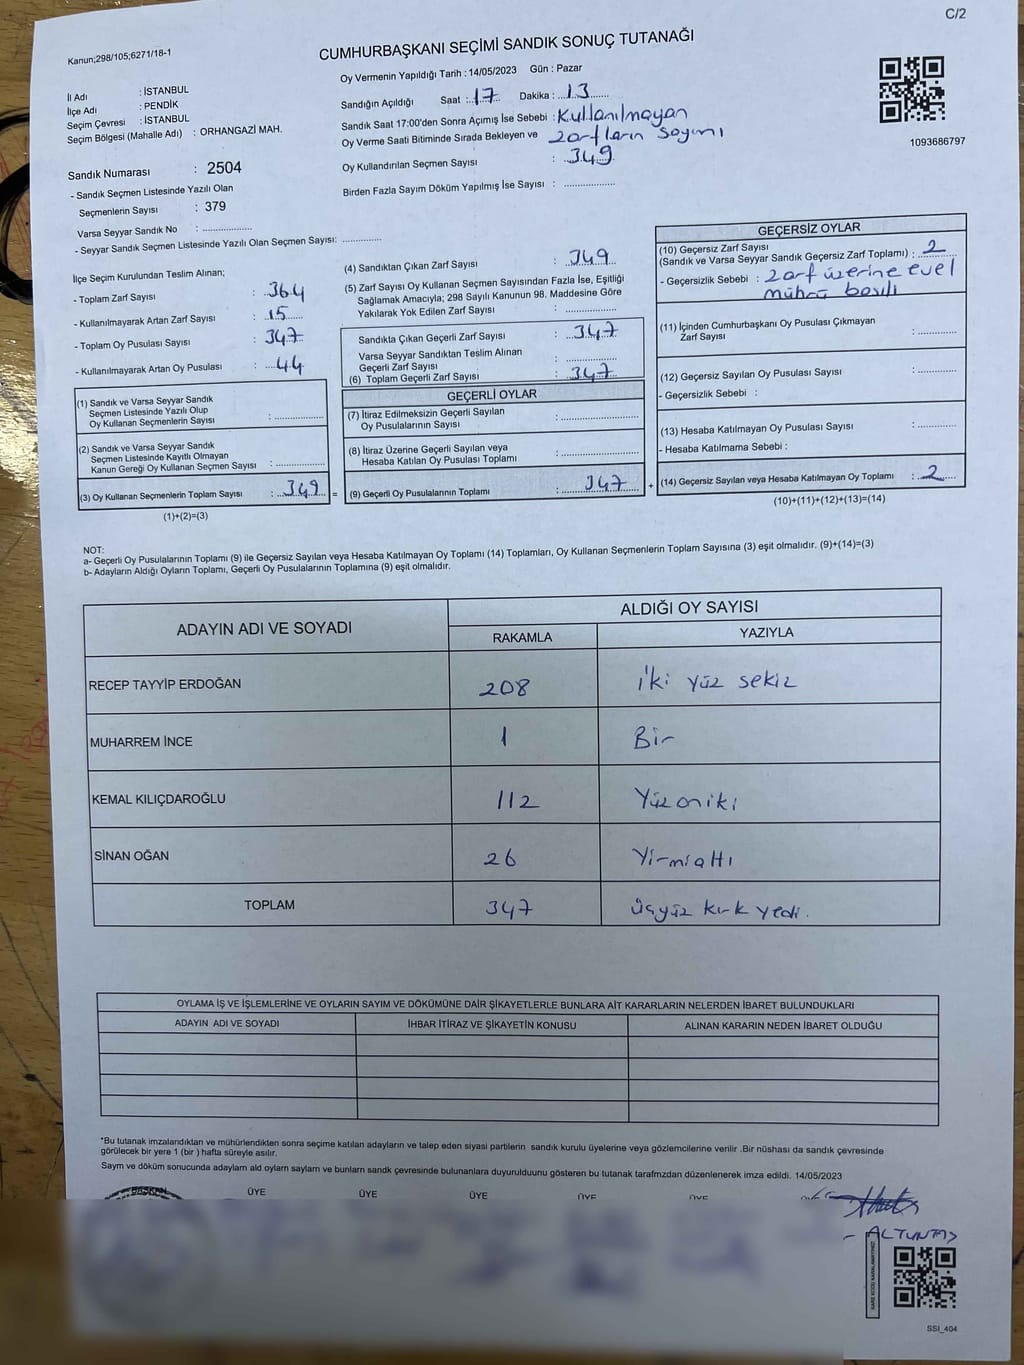 C/2
Kanun;298/105;6271/18-1
CUMHURBAŞKANI SEÇİMİ SANDIK SONUÇ TUTANAĞI
İl Adı : İSTANBUL
İlçe Adı : PENDİK
Seçim Çevresi : İSTANBUL
Seçim Bölgesi (Mahalle Adı) : ORHANGAZİ MAH.
Sandık Numarası : 2504
- Sandık Seçmen Listesinde Yazılı Olan
Seçmenlerin Sayısı : 379
Varsa Seyyar Sandık No : ..................
- Seyyar Sandık Seçmen Listesinde Yazılı Olan Seçmen Sayısı: ..............
Oy Vermenin Yapıldığı Tarih : 14/05/2023 Gün : Pazar
Sandığın Açıldığı Saat : 17 Dakika : 13
Sandık Saat 17:00'den Sonra Açımış İse Sebebi : Kullanılmayan
Oy Verme Saati Bitiminde Sırada Bekleyen ve zarfların sayımı
Oy Kullandırılan Seçmen Sayısı : 349
Birden Fazla Sayım Döküm Yapılmış İse Sayısı : ..................
1093686797
İlçe Seçim Kurulundan Teslim Alınan;
- Toplam Zarf Sayısı : 364
- Kullanılmayarak Artan Zarf Sayısı : 15
- Toplam Oy Pusulası Sayısı : 347
- Kullanılmayarak Artan Oy Pusulası : 44
(1) Sandık ve Varsa Seyyar Sandık
Seçmen Listesinde Yazılı Olup
Oy Kullanan Seçmenlerin Sayısı : ..................
(2) Sandık ve Varsa Seyyar Sandık
Seçmen Listesinde Kayıtlı Olmayan
Kanun Gereği Oy Kullanan Seçmen Sayısı : ..................
(3) Oy Kullanan Seçmenlerin Toplam Sayısı : 349 =
(1)+(2)=(3)
(4) Sandıktan Çıkan Zarf Sayısı : 349
(5) Zarf Sayısı Oy Kullanan Seçmen Sayısından Fazla İse, Eşitliği
Sağlamak Amacıyla; 298 Sayılı Kanunun 98. Maddesine Göre
Yakılarak Yok Edilen Zarf Sayısı : ..................
Sandıkta Çıkan Geçerli Zarf Sayısı : 347
Varsa Seyyar Sandıktan Teslim Alınan
Geçerli Zarf Sayısı : ..................
(6) Toplam Geçerli Zarf Sayısı : 347
GEÇERLİ OYLAR
(7) İtiraz Edilmeksizin Geçerli Sayılan
Oy Pusulalarının Sayısı : ..................
(8) İtiraz Üzerine Geçerli Sayılan veya
Hesaba Katılan Oy Pusulası Toplamı : ..................
(9) Geçerli Oy Pusulalarının Toplamı : 347 +
GEÇERSİZ OYLAR
(10) Geçersiz Zarf Sayısı
(Sandık ve Varsa Seyyar Sandık Geçersiz Zarf Toplamı) : 2
- Geçersizlik Sebebi : zarf üzerine evel
mührü basılı
(11) İçinden Cumhurbaşkanı Oy Pusulası Çıkmayan
Zarf Sayısı : ..............
(12) Geçersiz Sayılan Oy Pusulası Sayısı : ..............
- Geçersizlik Sebebi :
(13) Hesaba Katılmayan Oy Pusulası Sayısı : ..............
- Hesaba Katılmama Sebebi :
(14) Geçersiz Sayılan veya Hesaba Katılmayan Oy Toplamı : 2
(10)+(11)+(12)+(13)=(14)
NOT:
a- Geçerli Oy Pusulalarının Toplamı (9) ile Geçersiz Sayılan veya Hesaba Katılmayan Oy Toplamı (14) Toplamları, Oy Kullanan Seçmenlerin Toplam Sayısına (3) eşit olmalıdır. (9)+(14)=(3)
b- Adayların Aldığı Oyların Toplamı, Geçerli Oy Pusulalarının Toplamına (9) eşit olmalıdır.
ADAYIN ADI VE SOYADI
ALDIĞI OY SAYISI
RAKAMLA YAZIYLA
RECEP TAYYİP ERDOĞAN 208 iki yüz sekiz
MUHARREM İNCE 1 Bir
KEMAL KILIÇDAROĞLU 112 Yüz oniki
SİNAN OĞAN 26 Yirmialtı
TOPLAM 347 üçyüz kırk yedi.
OYLAMA İŞ VE İŞLEMLERİNE VE OYLARIN SAYIM VE DÖKÜMÜNE DAİR ŞİKAYETLERLE BUNLARA AİT KARARLARIN NELERDEN İBARET BULUNDUKLARI
ADAYIN ADI VE SOYADI İHBAR İTİRAZ VE ŞİKAYETİN KONUSU ALINAN KARARIN NEDEN İBARET OLDUĞU
*Bu tutanak imzalandıktan ve mühürlendikten sonra seçime katılan adayların ve talep eden siyasi partilerin sandık kurulu üyelerine veya gözlemcilerine verilir .Bir nüshası da sandık çevresinde
görülecek bir yere 1 (bir ) hafta süreyle asılır.
Saym ve döküm sonucunda adaylarn ald oylarn saylarn ve bunlarn sandk çevresinde bulunanlara duyurulduunu gösteren bu tutanak tarafmzdan düzenlenerek imza edildi. 14/05/2023
BAŞKAN ÜYE ÜYE ÜYE ÜYE ÜYE
ALTUNTAŞ
SSİ_404